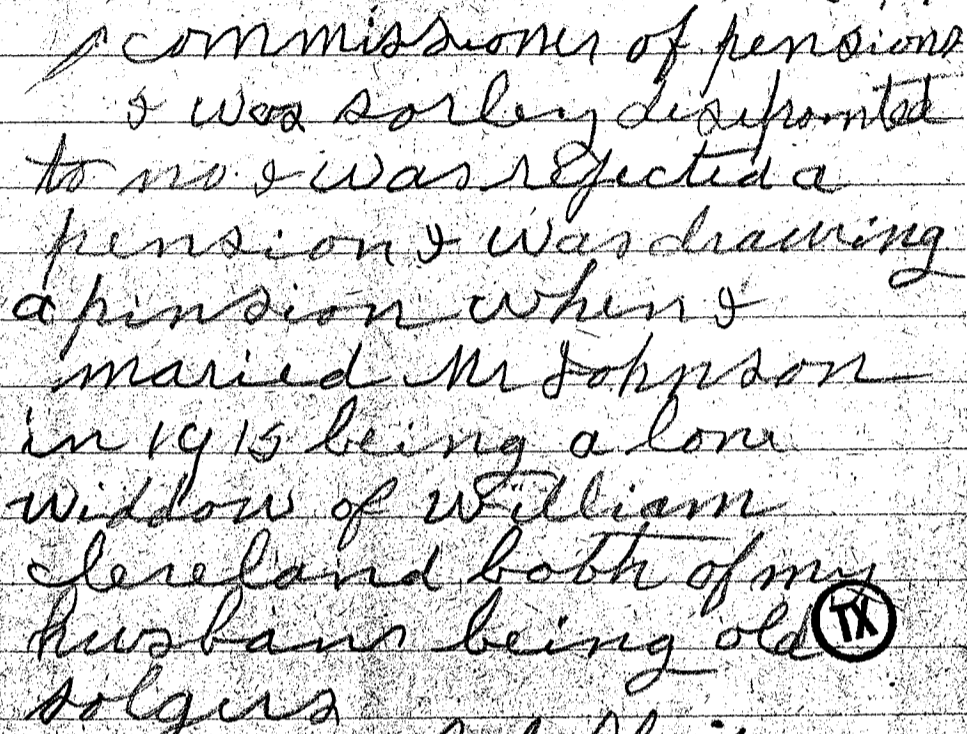 commissioner of pensions
I was sorley disipointed
to no I was rejected a
pension I was drawing
a pinsion when I
maried Mr Johnson
in 1915 being a lone
widdow of William
clereland both of my
husbans being old
TX
solgers